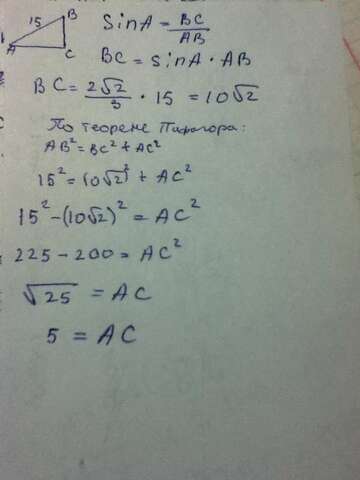 15 B
A C
sin A = BC/AB
BC = sin A · AB
BC = 2√2/3 · 15 = 10√2
По теореме Пифагора:
AB² = BC² + AC²
15² = (10√2)² + AC²
15² - (10√2)² = AC²
225 - 200 = AC²
√25 = AC
5 = AC